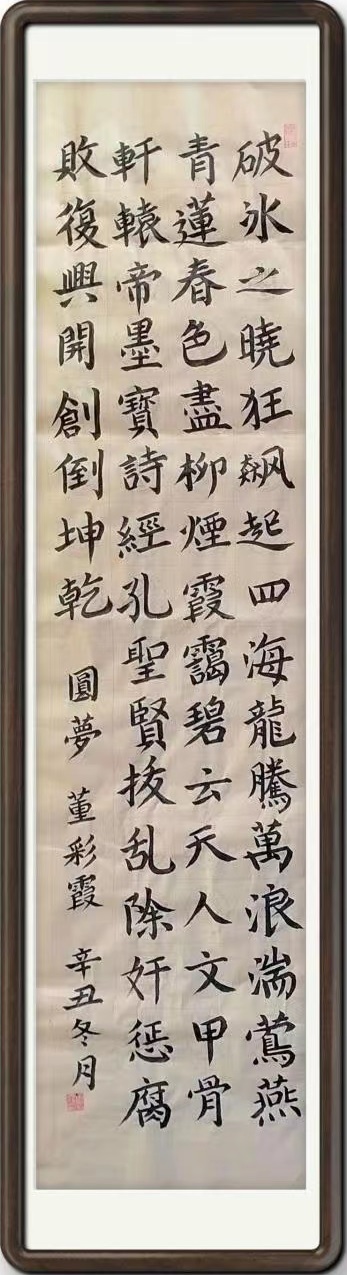 破冰之曉狂飙起四海龍騰萬浪湍鶯燕
青蓮春色盡柳煙霞靄碧云天人文甲骨
軒轅帝墨寶詩經孔聖賢拨乱除奸惩腐
敗復興開創倒坤乾 圓夢 董彩霞 辛丑冬月